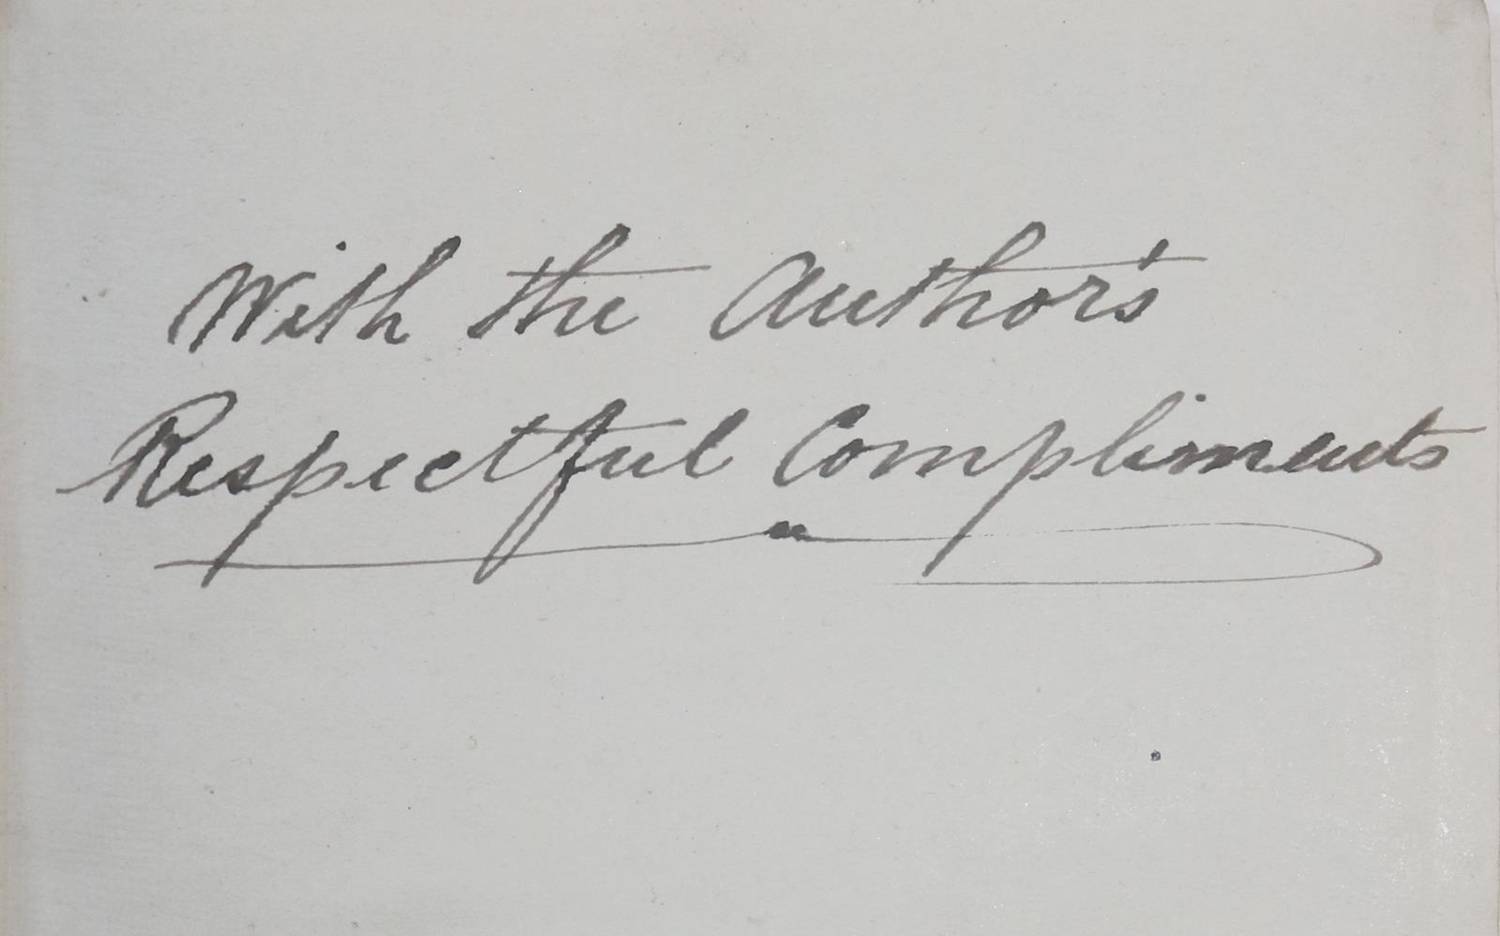 With the Author's
Respectful Compliments